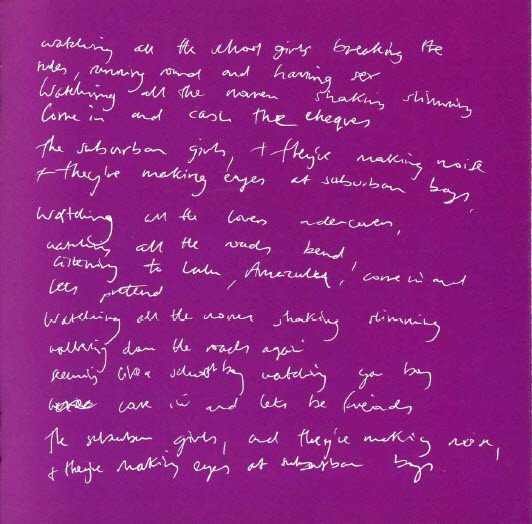 watching all the school girls breaking the
rules, running round and having sex
Watching all the women shaking slimming
Come in and cash the cheques
The suburban girls, + they're making noise
+ they're making eyes at suburban boys,
Watching all the lovers undercovers,
watching all the roads bend
Listening to Lulu, , come in and
lets pretend
Watching all the women shaking slimming
walking down the roads again
seeming like a schoolboy watching you boy
come in and lets be friends
The suburban girls, and they're making noise,
+ they're making eyes at suburban boys.